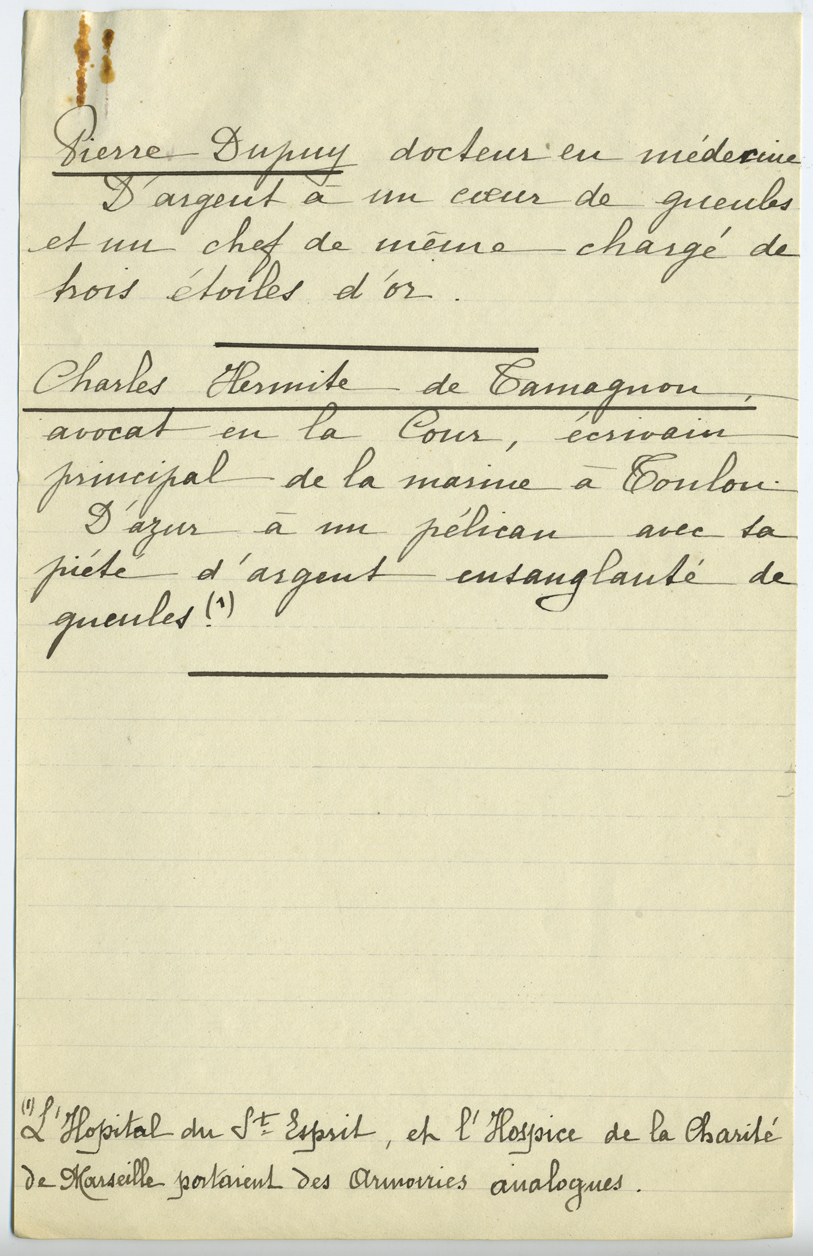 Pierre Dupuy docteur en médecine
D'argent à un cœur de gueules
et un chef de même chargé de
trois étoiles d'or.
Charles Hermite de Tamagnon,
avocat en la Cour, écrivain
principal de la marine à Toulon.
D'azur à un pélican avec sa
piété d'argent ensanglanté de
gueules.(1)
(1) L'Hopital du St Esprit, et l'Hospice de la Charité
de Marseille portaient des Armoiries analogues.